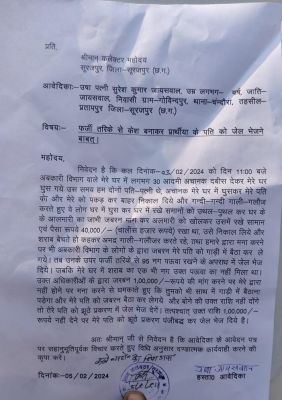 प्रति,
श्रीमान् कलेक्टर महोदय
सूरजपुर, जिला-सूरजपुर (छ.ग.)
आवेदिका:- उषा पत्नी सुरेश कुमार जायसवाल, उम्र लगभग- वर्ष, जाति-
जायसवाल, निवासी ग्राम-गोविन्दपुर, थाना-चन्दौरा, तहसील-
प्रतापपुर जिला-सूरजपुर (छ.ग.)
विषय:- फर्जी तरिके से केश बनाकर प्रार्थीया के पति को जेल भेजने
बाबत्।
महोदय,
निवेदन है कि कल दिनांक-03/02/2024 को दिन 11:00 बजे
अबकारी विभाग वाले मेरे घर में लगभग 30 आदमी अचानक दबीस देकर मेरे घर
घुस गये उस समय हम दोनों पति-पत्नी थे, अचानक मेरे घर में घुसकर मेरे पति
की और मेरे को पकड़ कर बाहर निकाल दिये और गन्दी-गन्दी गाली-गलौज
करते हुए वे लोग घर में घुसकर घर में रखे समानों को उथल-पुथल कर घर के
के आलमारी का चाभी जबरन मांग कर अलमारी को खोलकर उसमें रखे सामान
एवं पैसा रूपये 40,000/- (चालीस हजार रूपये) रखा था, उसे निकाल लिये और
शराब बेचते हो कहकर अभद्र गाली-गलौज करते रहे, तथा हमारे द्वारा मना करने
पर भी अबकारी विभाग के लोगों के द्वारा जबरन मेरे पति को गाड़ी में बैठा कर ले
गये। तब उनके उपर फर्जी तरिके से 95 नग पऊवा रखने के अपराध में जेल भेज
दिये। जबकि मेरे घर में शराब का एक भी नग उक्त पऊवा का नहीं मिला था।
उक्त अधिकारीओं के द्वारा जबरन 1,00,000/-रूपये की मांग करने पर मेरे द्वारा
नहीं होने पर मना करने से धमकाते हुए कि तुमको भी साथ में गाड़ी में बैठाना
पड़ेगा और मेरे पति को जबरन बैठा कर लेगये और बोने की उक्त राशि नहीं दोगे
तो तेरे पति को झूठे प्रकरण में जेल भेज देगें। तत्पश्चात् उक्त राशि 1,00,000/-
रूपये नहीं देने पर मेरे पति को झूठे प्रकरण पंजीबद्ध कर जेल भेज दिये है।
अतः श्रीमान् जी से निवेदन है कि आवेदिका के आवेदन पत्र
पर सहानुभूतिपूर्वक विचार करते हुए विधि अनुसार दण्डात्मक कार्यवाही करने की
कृपा करें।
दिनांक:-05/02/2024
उषा जायसवाल
हस्ता० आवेदिका